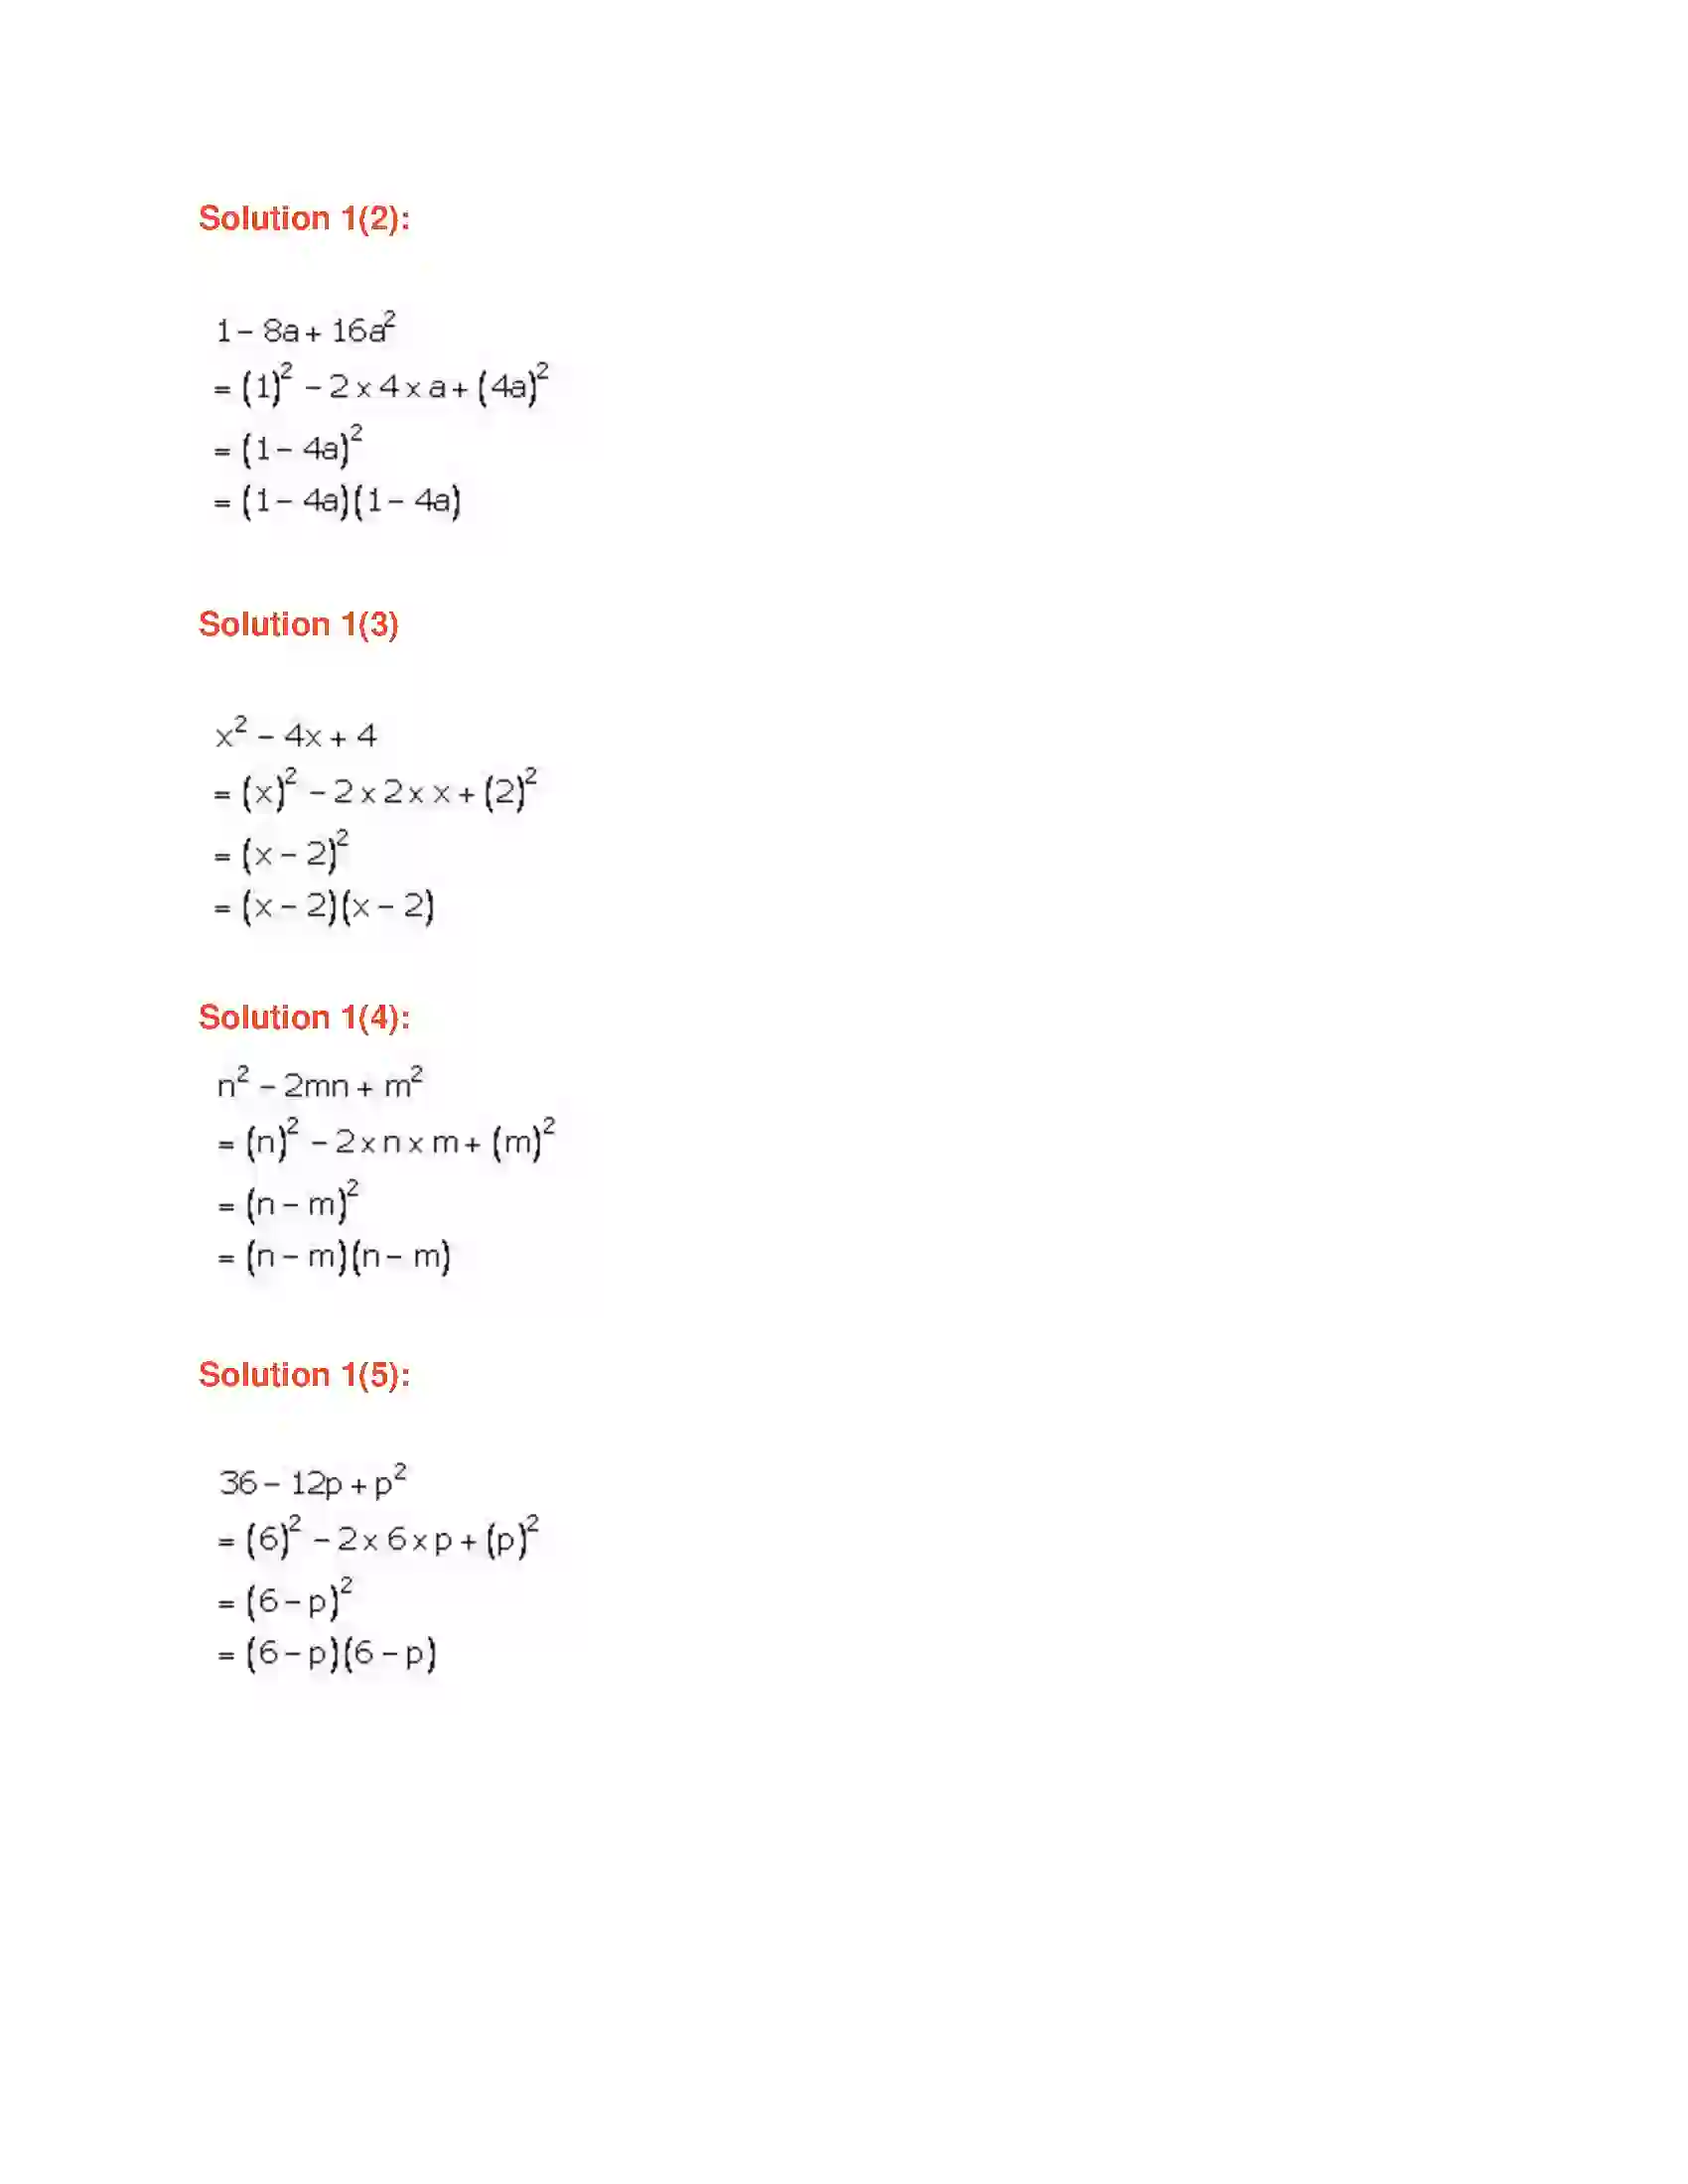 Solution 1(2):
1 – 8a + 16a²
= (1)² – 2 x 4 x a + (4a)²
= (1 – 4a)²
= (1 – 4a)(1 – 4a)
Solution 1(3)
x² – 4x + 4
= (x)² – 2 x 2 x x + (2)²
= (x – 2)²
= (x – 2)(x – 2)
Solution 1(4):
n² – 2mn + m²
= (n)² – 2 x n x m + (m)²
= (n – m)²
= (n – m)(n – m)
Solution 1(5):
36 – 12p + p²
= (6)² – 2 x 6 x p + (p)²
= (6 – p)²
= (6 – p)(6 – p)